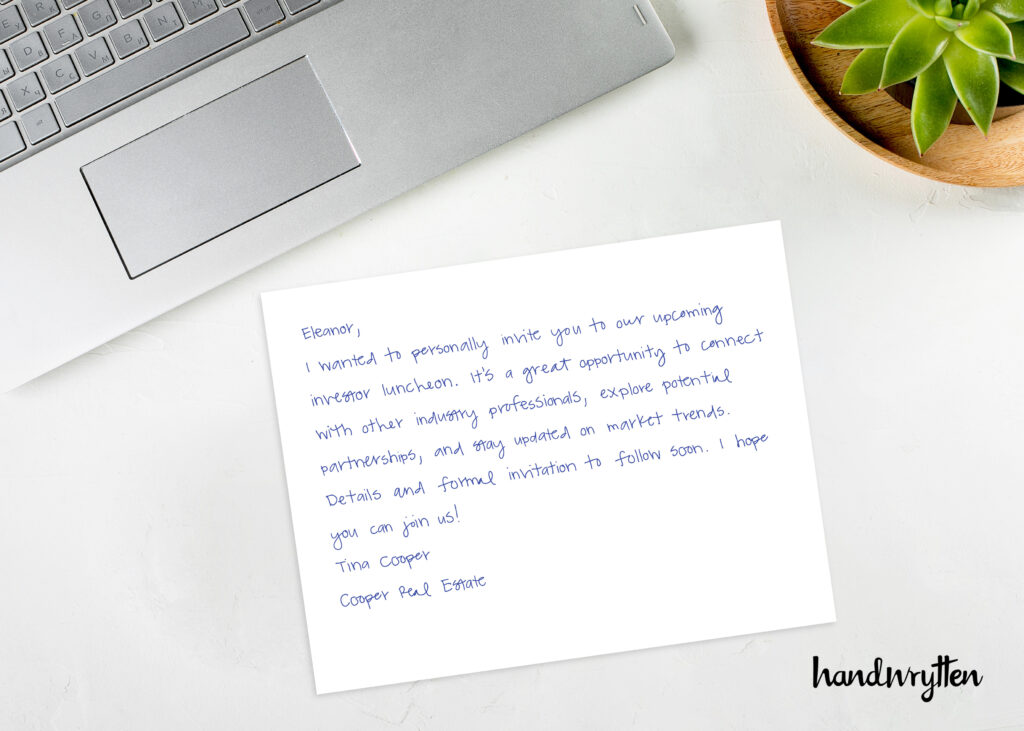 Eleanor,
I wanted to personally invite you to our upcoming
investor luncheon. It's a great opportunity to connect
with other industry professionals, explore potential
partnerships, and stay updated on market trends.
Details and formal invitation to follow soon. I hope
you can join us!
Tina Cooper
Cooper Real Estate
handwrytten